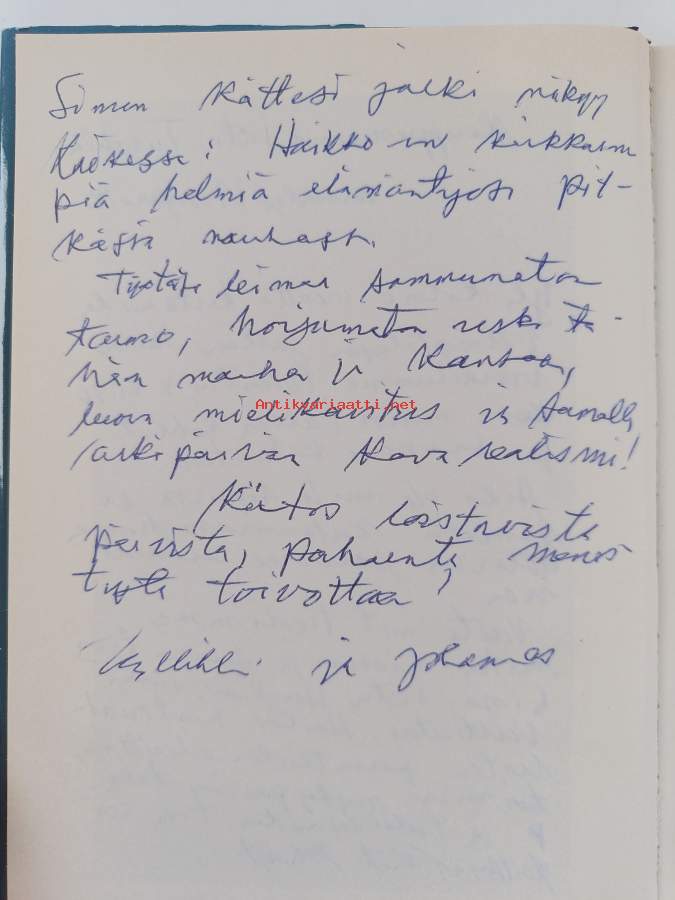 Sinun kättesi jälki näkyy
kaikessa! Haikko on kirkkaim
pia helmiä elämäntyösi pit-
kässä nauhassa.
Työtäsi leimaa sammumaton
tarmo, horjumaton usko tä-
hän maahan ja kansaan,
luova mielikuvitus ja samalla
arkipäivän kova realismi!
Antikvariaatti.net
Kiitos loistavista
päivistä, parhainta menes
tystä toivottaa
Kyllikki ja Johannes